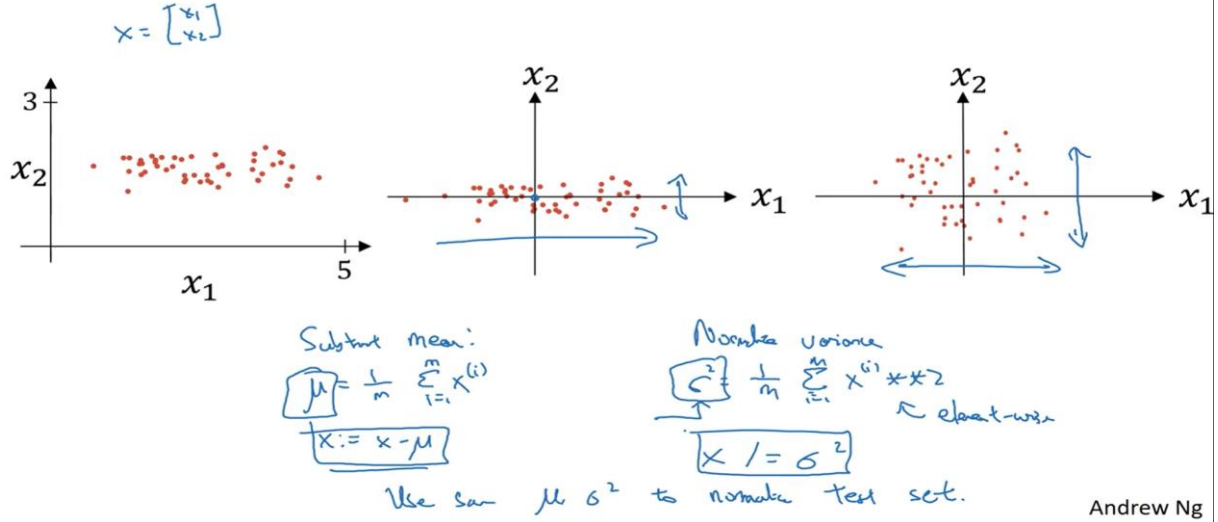 x = [x₁ x₂]
3
x₂
x₁
5
x₂
x₁
x₂
x₁
Subtract mean:
μ = 1/m Σᵢ₌₁ᵐ x⁽ⁱ⁾
x := x - μ
Normalize variance
σ² = 1/m Σᵢ₌₁ᵐ x⁽ⁱ⁾ **2
element-wise
x /= σ²
Use same μ σ² to normalize test set.
Andrew Ng